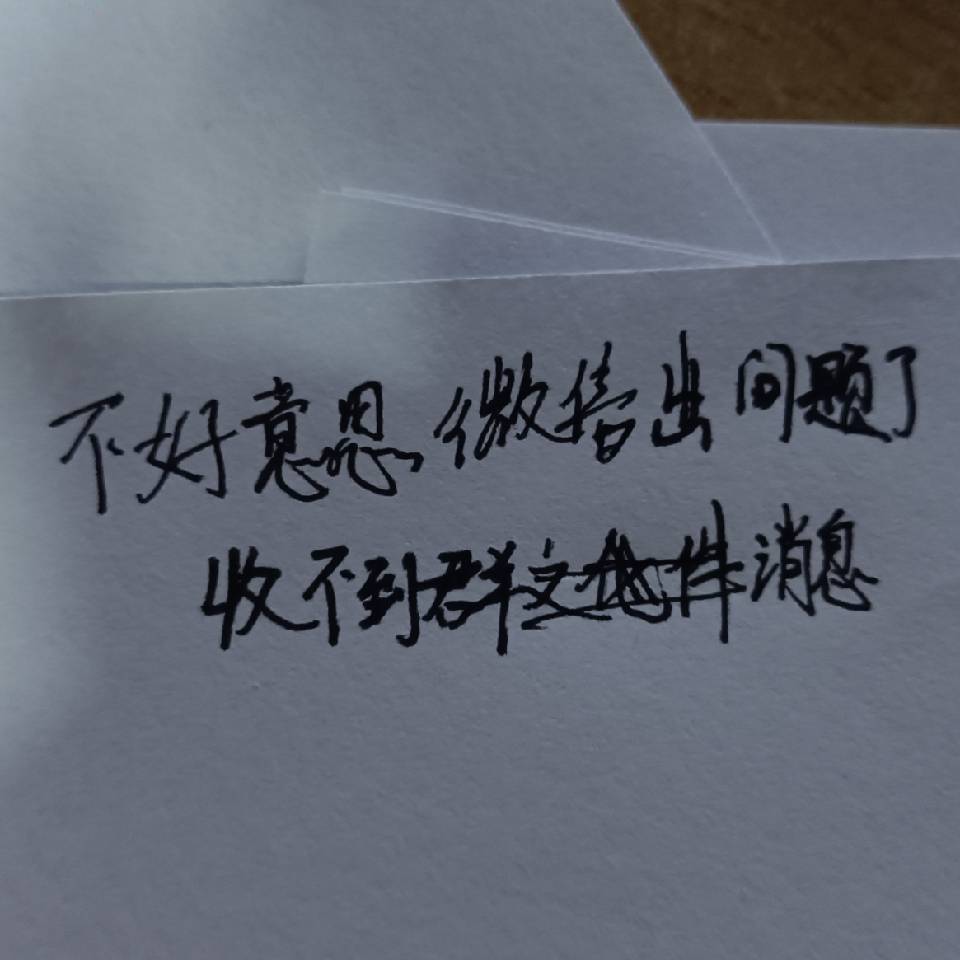 不好意思,微信出问题了
收不到群文件消息